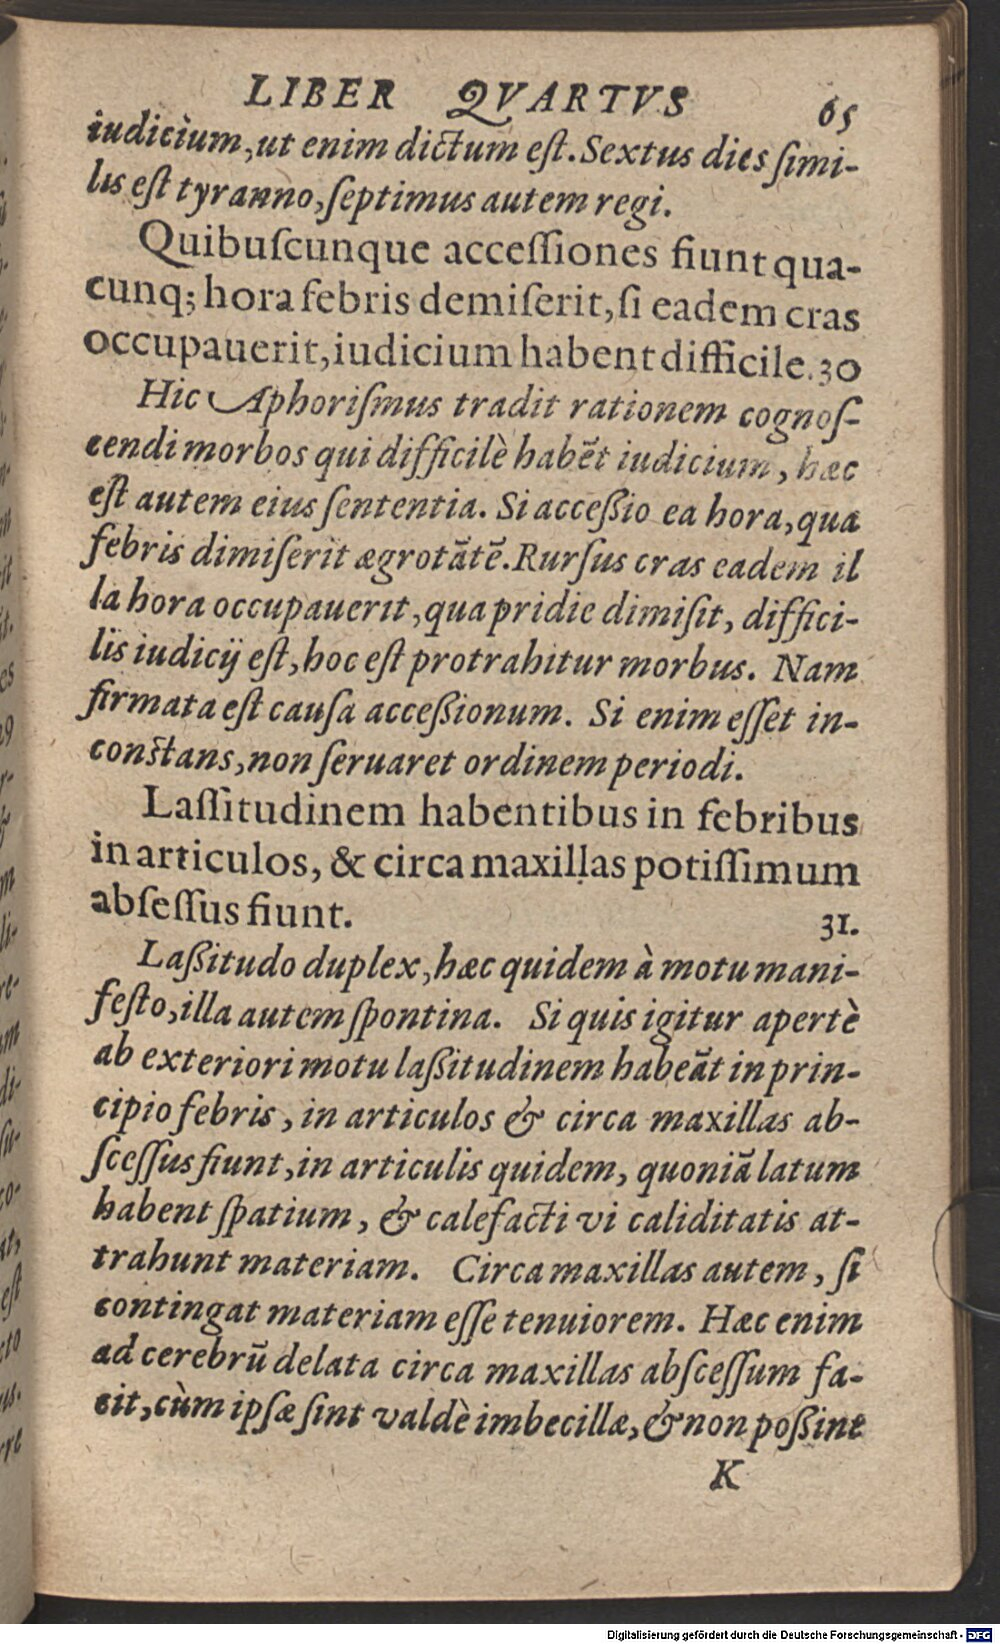 LIBER QVARTVS 65
iudicium, ut enim dictum eſt. Sextus dies ſimi-
lis eſt tyranno, ſeptimus autem regi.
Quibuſcunque acceſſiones fiunt qua-
cunq; hora febris demiſerit, ſi eadem cras
occupauerit, iudicium habent difficile. 30
Hic Aphoriſmus tradit rationem cognoſ-
cendi morbos qui difficilè habēt iudicium, hæc
eſt autem eius ſententia. Si acceßio ea hora, qua
febris dimiſerit ægrotātē. Rurſus cras eadem il
la hora occupauerit, qua pridie dimiſit, diffici-
lis iudicij eſt, hoc eſt protrahitur morbus. Nam
firmata eſt cauſa acceßionum. Si enim eſſet in-
conſtans, non ſeruaret ordinem periodi.
Laſſitudinem habentibus in febribus
in articulos, & circa maxillas potiſſimum
abſeſſus fiunt. 31.
Laßitudo duplex, hæc quidem à motu mani-
feſto, illa autem ſpontina. Si quis igitur apertè
ab exteriori motu laßitudinem habeāt in prin-
cipio febris, in articulos & circa maxillas ab-
ſceſſus fiunt, in articulis quidem, quoniā latum
habent ſpatium, & calefacti vi caliditatis at-
trahunt materiam. Circa maxillas autem, ſi
contingat materiam eſſe tenuiorem. Hæc enim
ad cerebrū delata circa maxillas abſceſſum fa-
cit, cùm ipſæ ſint valdè imbecillæ, & non poßint
K
Digitalisierung gefördert durch die Deutsche Forschungsgemeinschaft - DFG